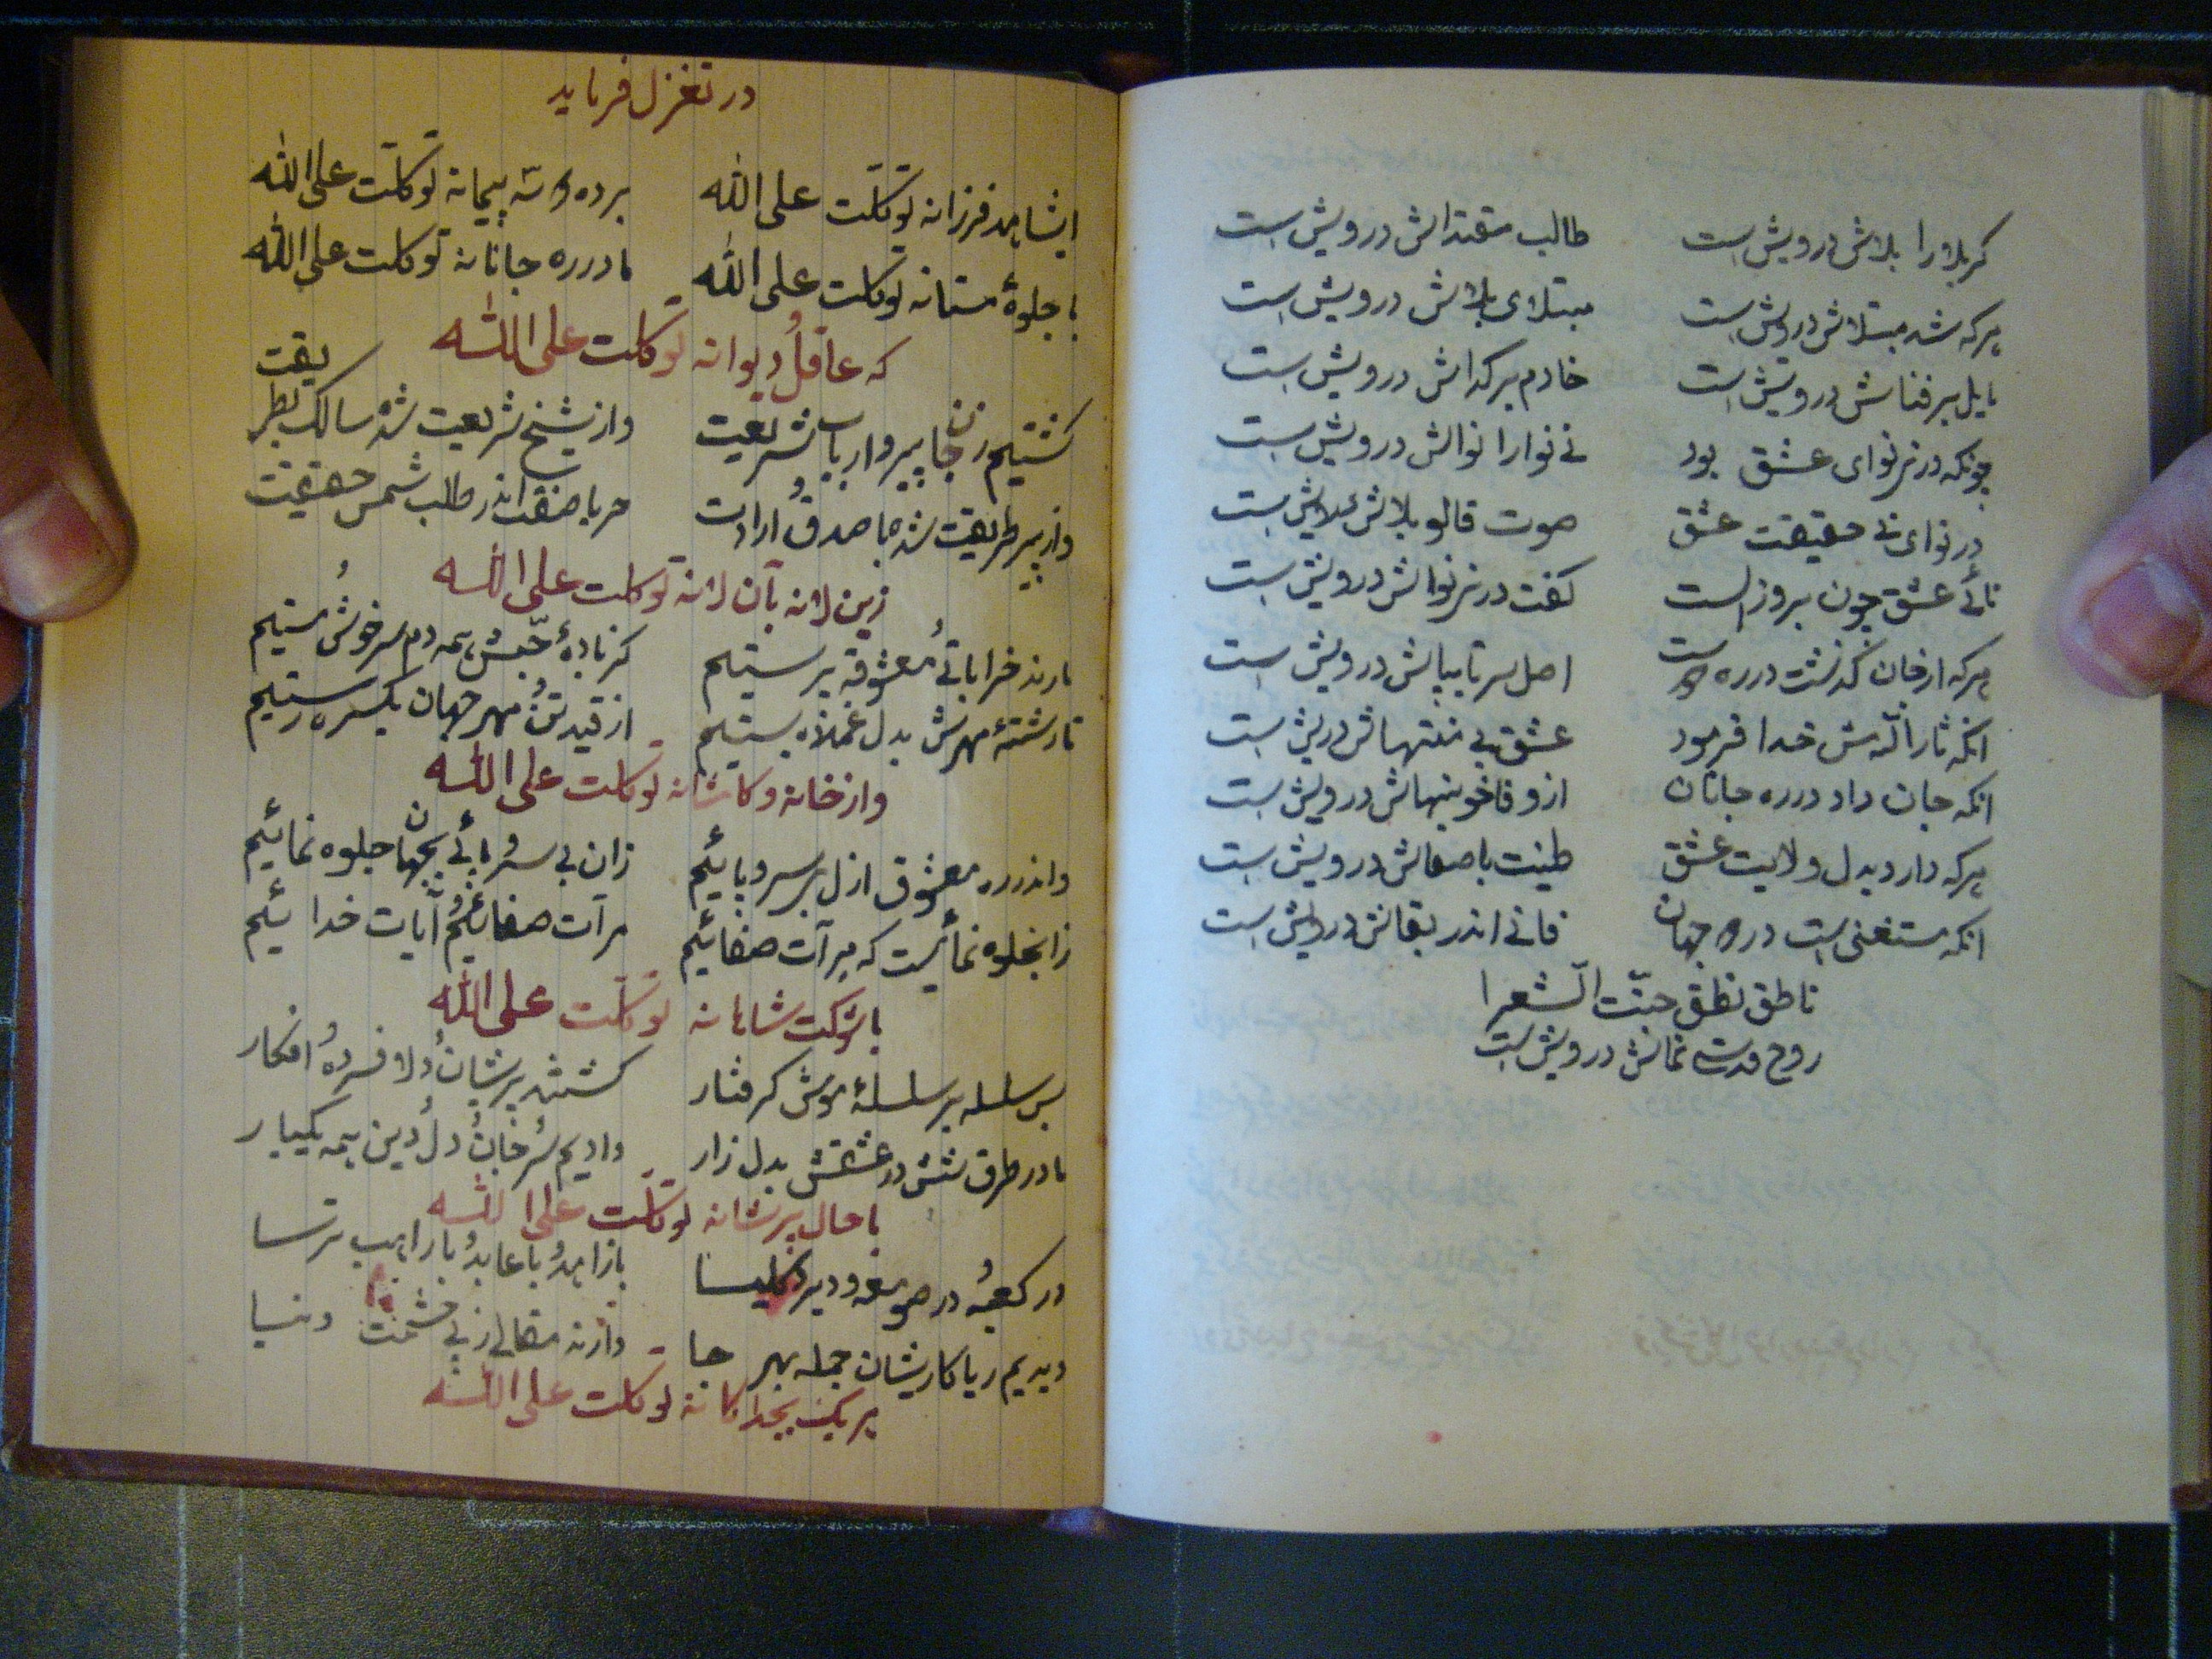 کربلا را بلاش درویش است طالب مقتداش درویش است
هرکه شد مبتلاش درویش است مبتلای بلاش درویش است
مایل بر فناش درویش است خادم هر گداش درویش است
چونکه در نی نوای عشق بود نی نوا را نواش درویش است
در نوای نی حقیقت عشق صوت قالو بلاش
نائی عشق چون بروز الست گفت در نی نواش درویش است
هرکه از خان گذشت در ره دوست اصل سر تا بپاش درویش است
انکه ثارالله‌ش خدا فرمود عشق بی منتهاش درویش است
انکه جان داد در ره جانان از وفا خونبهاش درویش است
هرکه دارد بدل ولایت عشق طینت باصفاش درویش است
انکه مستغنی است در دو جهان فانی اندر بقاش درویش است
ناطق نطق جنّت الشعرا
روح قدسی نماش درویش است
در تغزل فرماید
ایشاهد فرزانه توکلت علی الله بر ده دو سه پیمانه توکلت علی الله
با جلوهٔ مستانه توکلت علی الله ما در ره جانانه توکلت علی الله
که عاقل و دیوانه توکلت علی الله
گشتیم ز جان پیرو ارباب شریعت واز شیخ شریعت شده سالک بطریقت
واز پیر طریقت شده با صدق و ارادت حربا صفت اندر طلب شمس حقیقت
زین لانه بآن لانه توکلت علی الله
ما رند خراباتی و معشوقه پرستیم کز بادهٔ حبّش همه دم سرخوش و مستیم
تا رشتهٔ مهرش بدل غمزده بستیم از قید تن و مهر جهان یکسره رستیم
واز خانه و کاشانه توکلت علی الله
واندر ره معشوق ازل بی سر و پائیم زان بی سر و پائی بجهان جلوه نمائیم
زانجلوه نمائیست که مرآت صفائیم مرآت صفائیم و آیات خدائیم
با شوکت شاهانه توکلت علی الله
بس سلسله بر سلسلهٔ موش گرفتار گشتند پریشان و دلافسرده و افکار
ما در طرق عشقش بدل زار دادیم سر و جان و دل و دین همه یکبار
با حال پریشانه توکلت علی الله
در کعبه و در صومعه و دیر و کلیسا با زاهد و با عابد و با راهب ترسا
دیدیم ریاکاریشان جمله بهر جا دنیا
هر یک بجداگانه توکلت علی الله